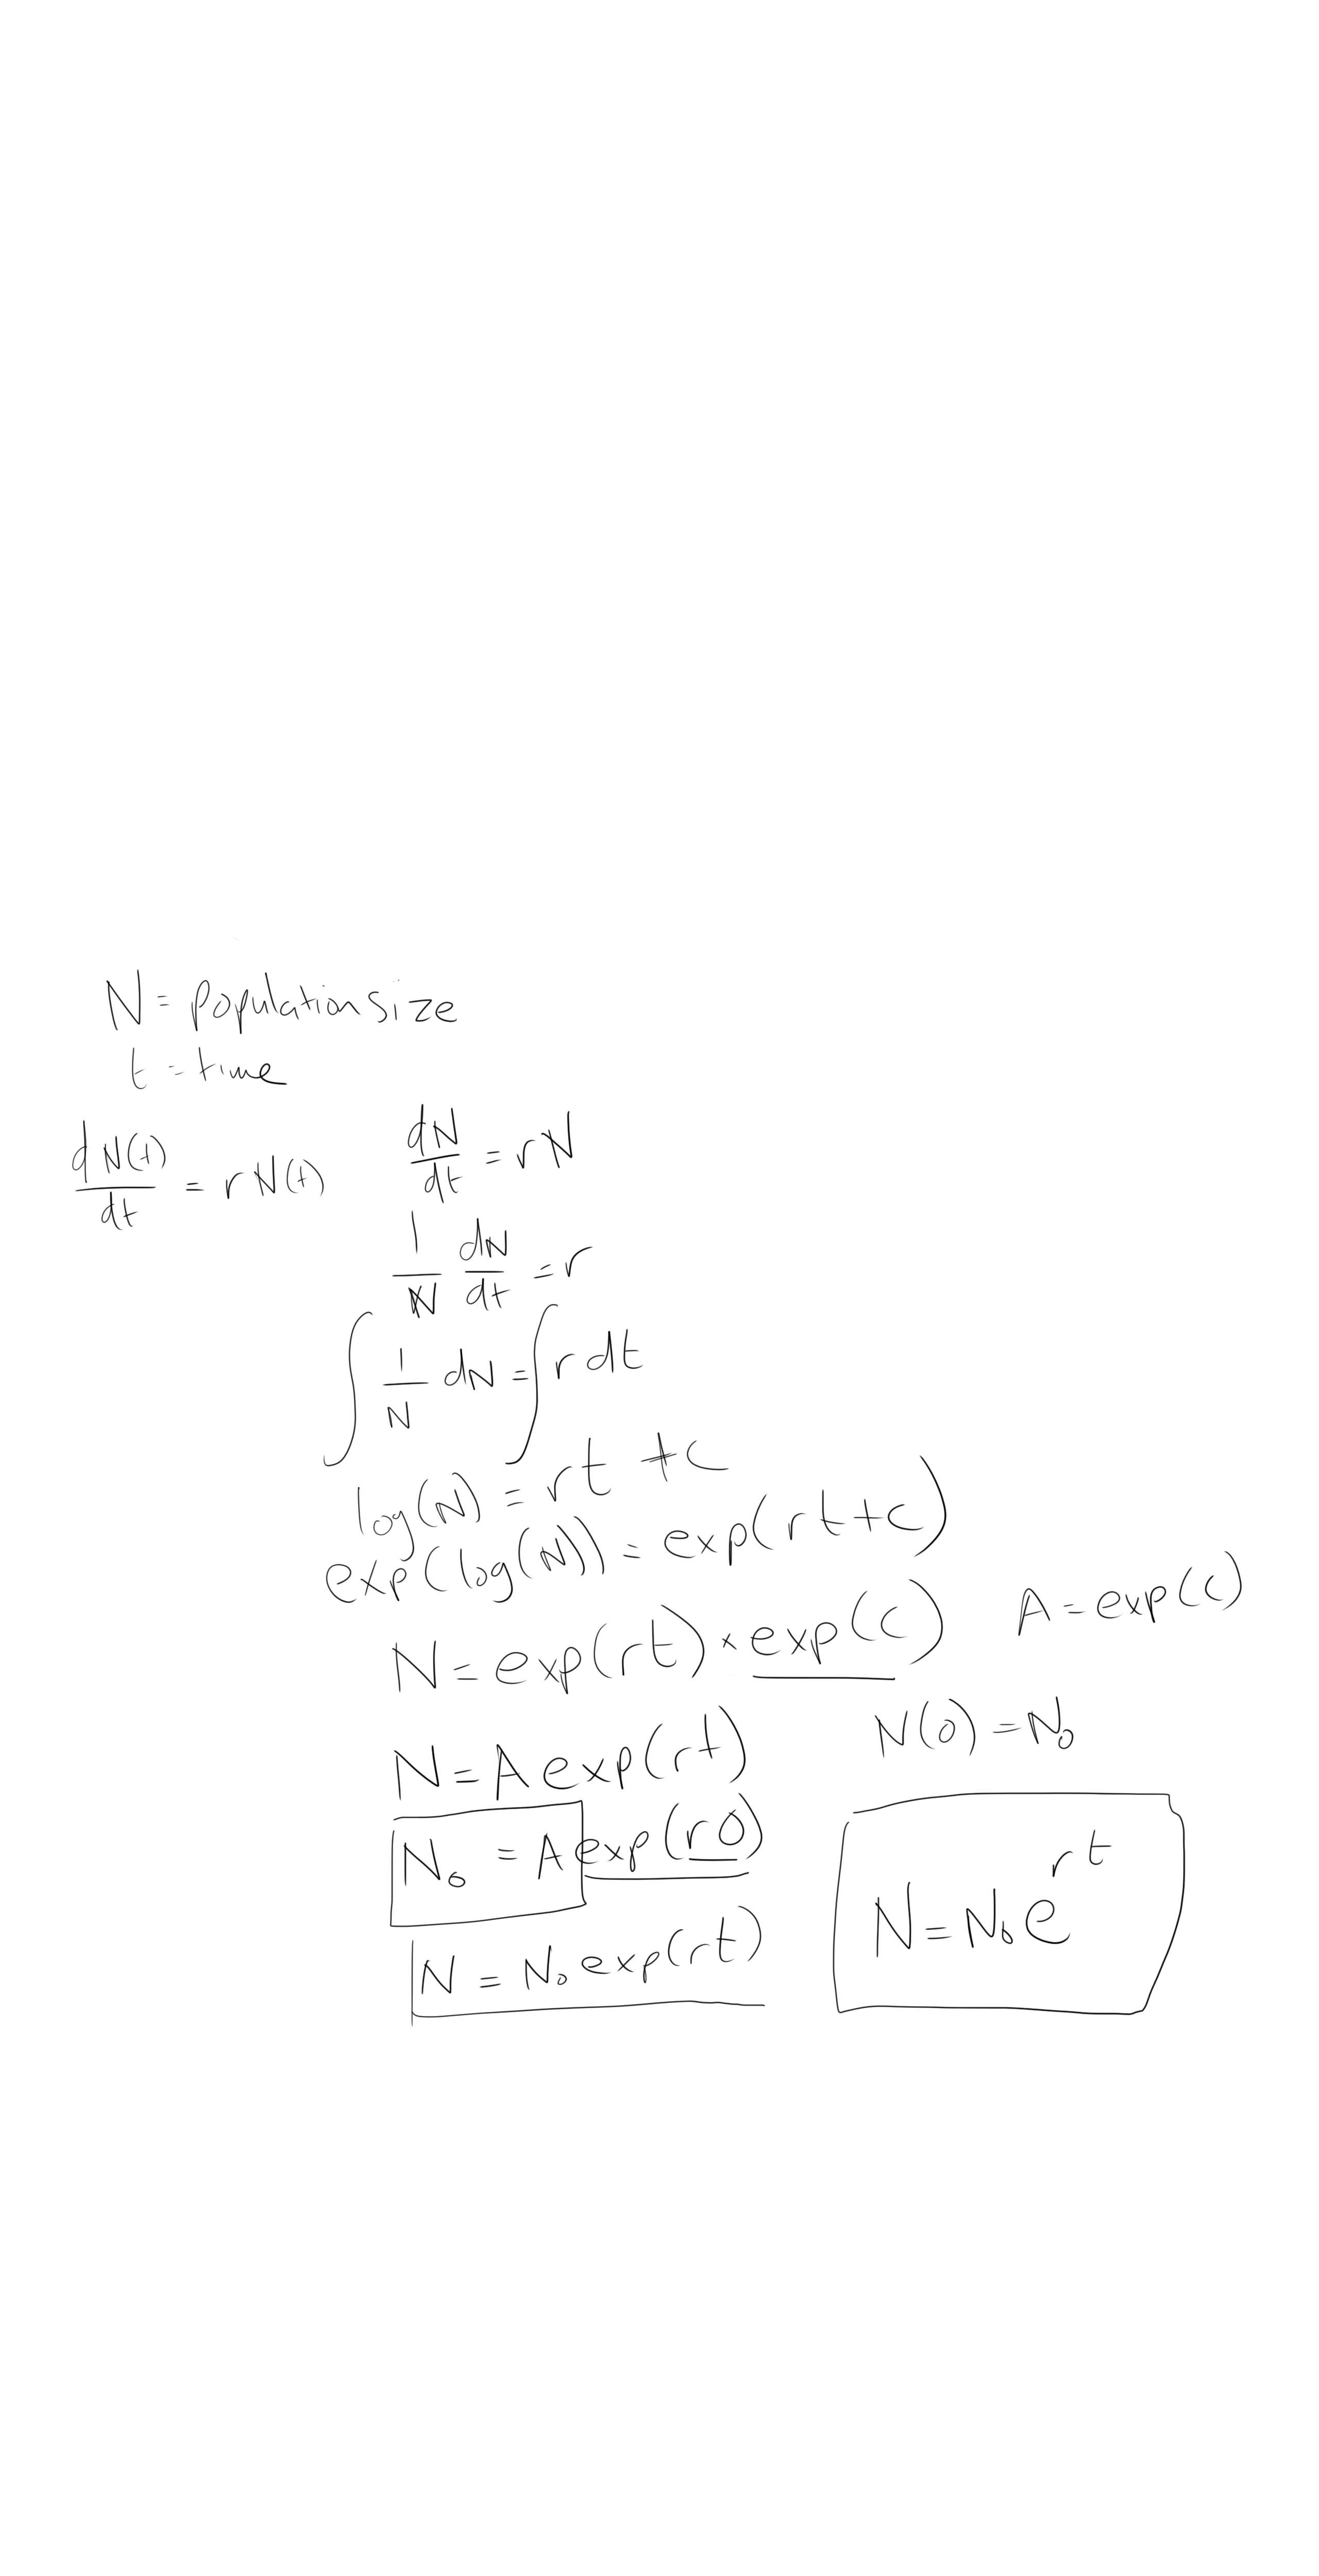 N = population size
t = time
dN(t)/dt = rN(t)
dN/dt = rN
1/N dN/dt = r
∫ 1/N dN = ∫ r dt
log(N) = rt + c
exp(log(N)) = exp(rt+c)
N = exp(rt) × exp(c)
A = exp(c)
N = A exp(rt)
N(0) = N₀
N₀ = A exp(r0)
N = N₀ exp(rt)
N = N₀ e^rt